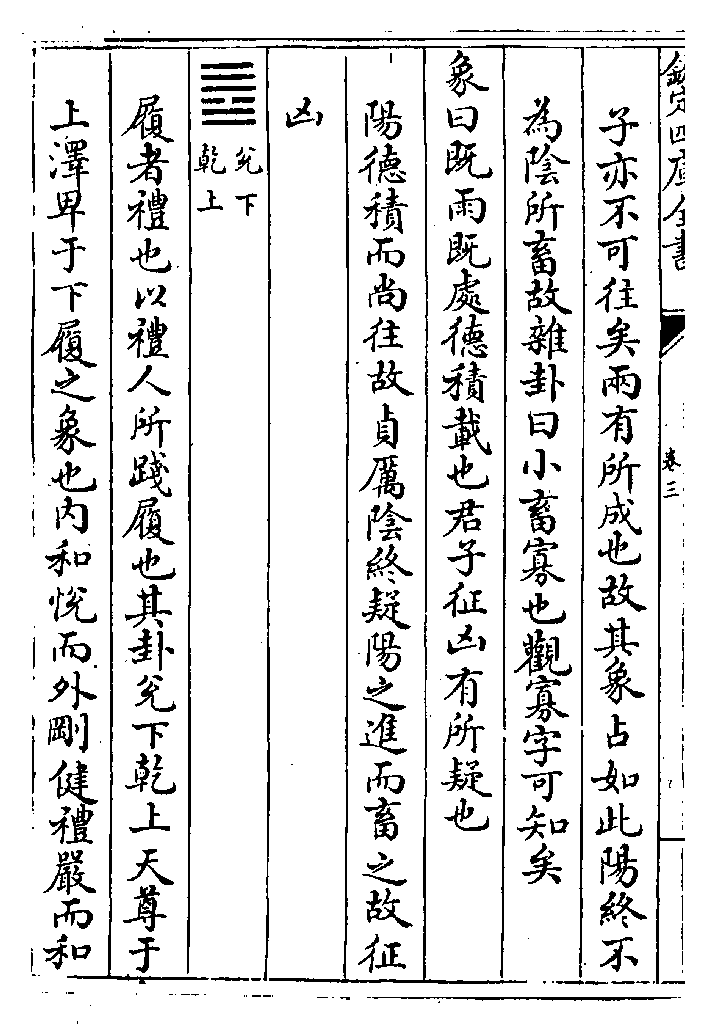 欽定四庫全書
卷三
子亦不可往矣兩有所成也故其象占如此陽終不
為陰所畜故雜卦曰小畜寡也觀寡字可知矣
象曰既雨既處德積載也君子征凶有所疑也
陽德積而尚往故貞厲陰終疑陽之進而畜之故征
凶
兌下
乾上
履者禮也以禮人所踐履也其卦兌下乾上天尊于
上澤卑于下履之象也内和悅而外剛健禮嚴而和